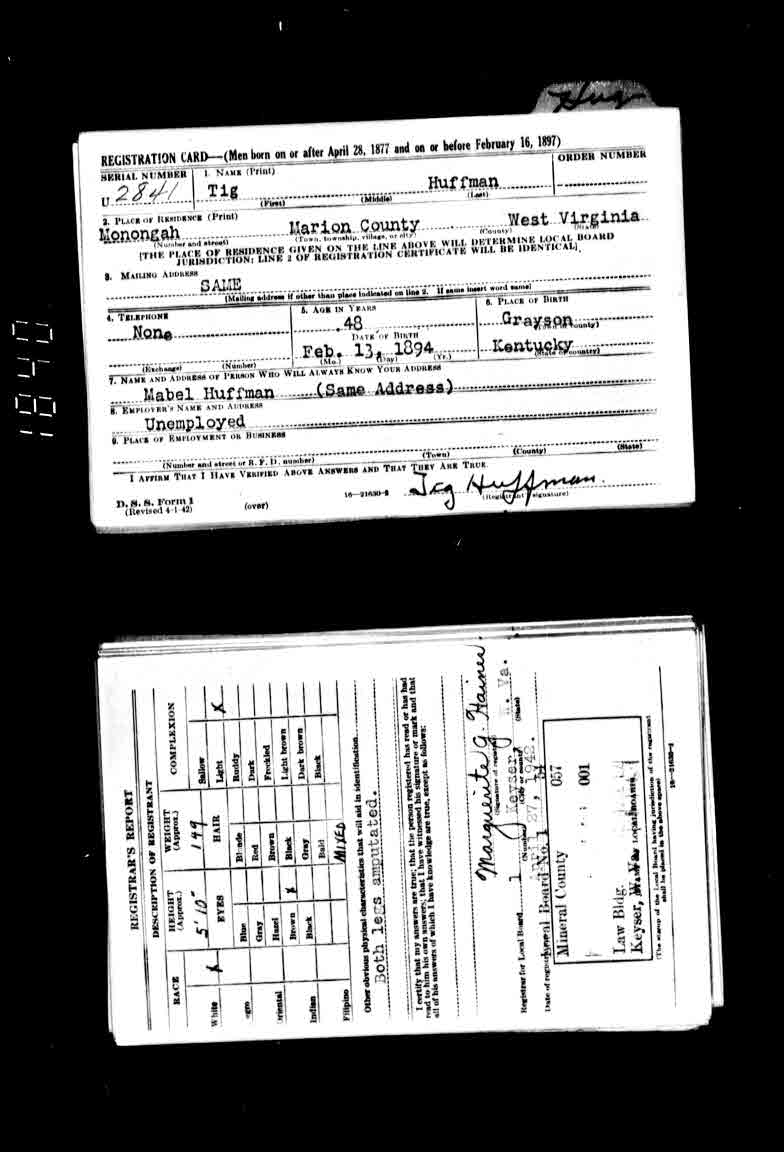 Hug
REGISTRATION CARD—(Men born on or after April 28, 1877 and on or before February 16, 1897)
SERIAL NUMBER
1. NAME (Print)
ORDER NUMBER
U 2841
Tig Huffman
(First) (Middle) (Last)
2. PLACE OF RESIDENCE (Print)
Monongah Marion County West Virginia
(Number and street) (Town, township, village, or city) (County) (State)
[THE PLACE OF RESIDENCE GIVEN ON THE LINE ABOVE WILL DETERMINE LOCAL BOARD
JURISDICTION; LINE 2 OF REGISTRATION CERTIFICATE WILL BE IDENTICAL]
3. MAILING ADDRESS
SAME
[Mailing address if other than place indicated on line 2. If same insert word same]
4. TELEPHONE
5. AGE IN YEARS
6. PLACE OF BIRTH
None
48
Grayson
DATE OF BIRTH
(Town or county)
Feb. 13, 1894
Kentucky
(Exchange) (Number)
(Mo.) (Day) (Yr.)
(State or country)
7. NAME AND ADDRESS OF PERSON WHO WILL ALWAYS KNOW YOUR ADDRESS
Mabel Huffman (Same Address)
8. EMPLOYER'S NAME AND ADDRESS
Unemployed
9. PLACE OF EMPLOYMENT OR BUSINESS
(Number and street or R. F. D. number) (Town) (County) (State)
I AFFIRM THAT I HAVE VERIFIED ABOVE ANSWERS AND THAT THEY ARE TRUE.
D. S. S. Form 1
(Revised 4-1-42)
(over)
16—21630-2
Tig Huffman.
(Registrant's signature)
1840
REGISTRAR'S REPORT
DESCRIPTION OF REGISTRANT
RACE
HEIGHT (Approx.)
WEIGHT (Approx.)
COMPLEXION
5' 10"
149
White X
EYES
HAIR
Sallow
Light X
Negro
Blue
Blonde
Ruddy
Gray
Red
Dark
Oriental
Hazel
Brown
Freckled
Brown X
Black
Light brown
Indian
Black
Gray
Dark brown
Bald
Black
Filipino
MIXED
Other obvious physical characteristics that will aid in identification
Both legs amputated.
I certify that my answers are true; that the person registered has read or has had
read to him his own answers; that I have witnessed his signature or mark and that
all of his answers of which I have knowledge are true, except as follows:
Marguerite G. Haines.
(Signature of registrar)
Registrar for Local Board 1 Keyser, W. Va.
(Number) (City or county) (State)
Date of registration April 27, 1942.
Local Board No. 1
Mineral County 057
001
Law Bldg.
Keyser, W. Va.
(STAMP OF LOCAL BOARD)
(The stamp of the Local Board having jurisdiction of the registrant
shall be placed in the above space)
16—21630-1